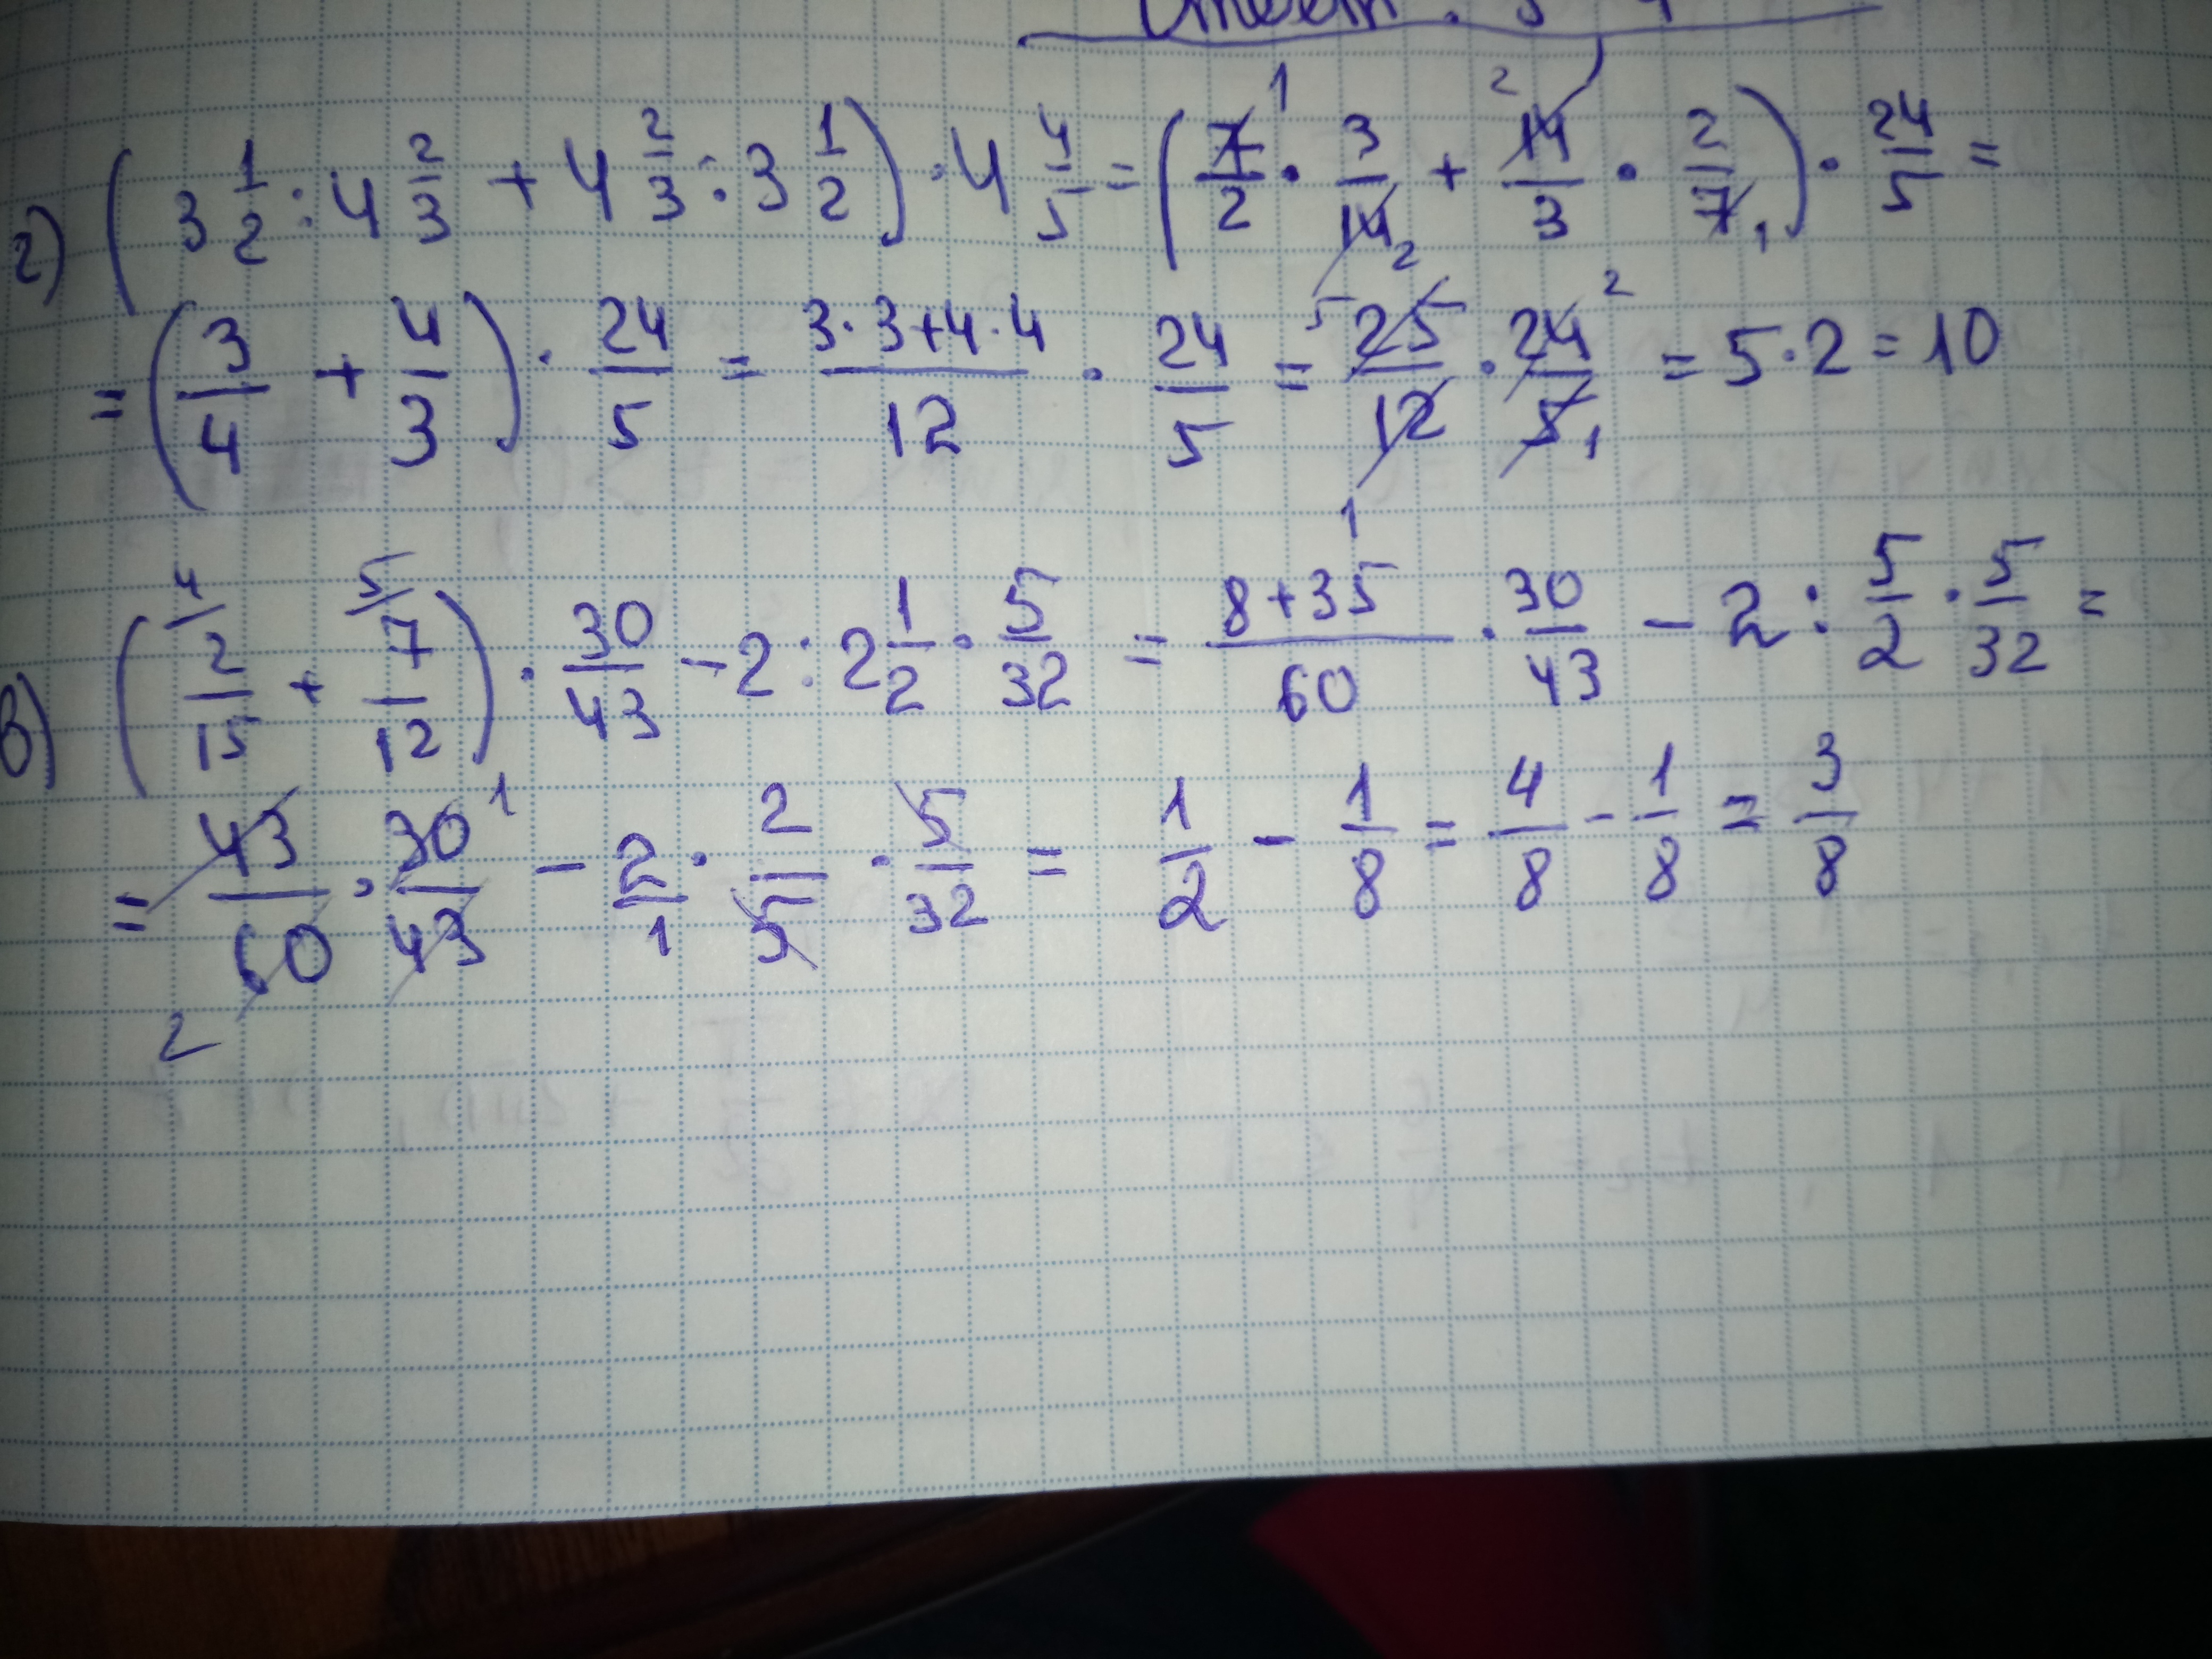 г) (3 1/2 : 4 2/3 + 4 2/3 : 3 1/2) · 4 4/5 = (7/2 · 3/14 + 14/3 · 2/7) · 24/5 =
= (3/4 + 4/3) · 24/5 = (3·3+4·4)/12 · 24/5 = 25/12 · 24/5 = 5·2 = 10
в) (2/15 + 7/12) · 30/43 - 2 : 2 1/2 · 5/32 = (8+35)/60 · 30/43 - 2 : 5/2 · 5/32 =
= 43/60 · 30/43 - 2/1 · 2/5 · 5/32 = 1/2 - 1/8 = 4/8 - 1/8 = 3/8